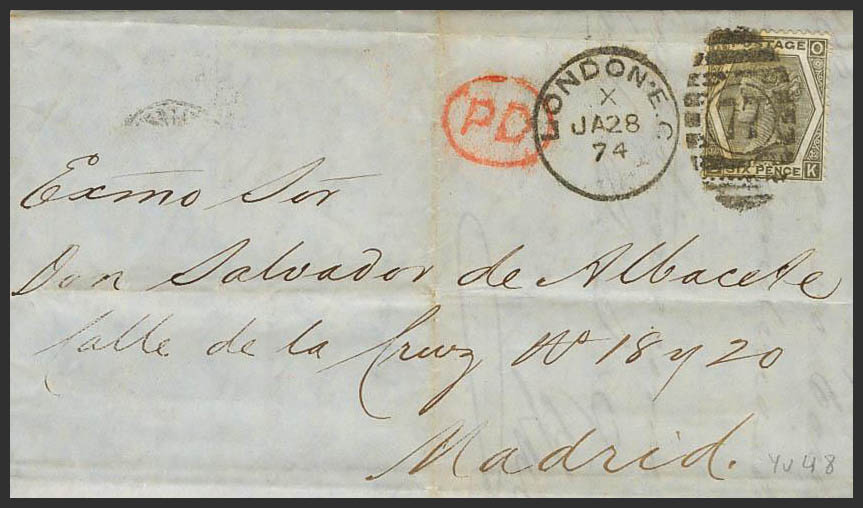 POSTAGE O
LONDON·E.C
X
JA28
74
77
PD
SIX PENCE K
Exmo Sor
Don Salvador de Albacete
Calle de la Cruz No 18 y 20
Madrid.
Yv 48